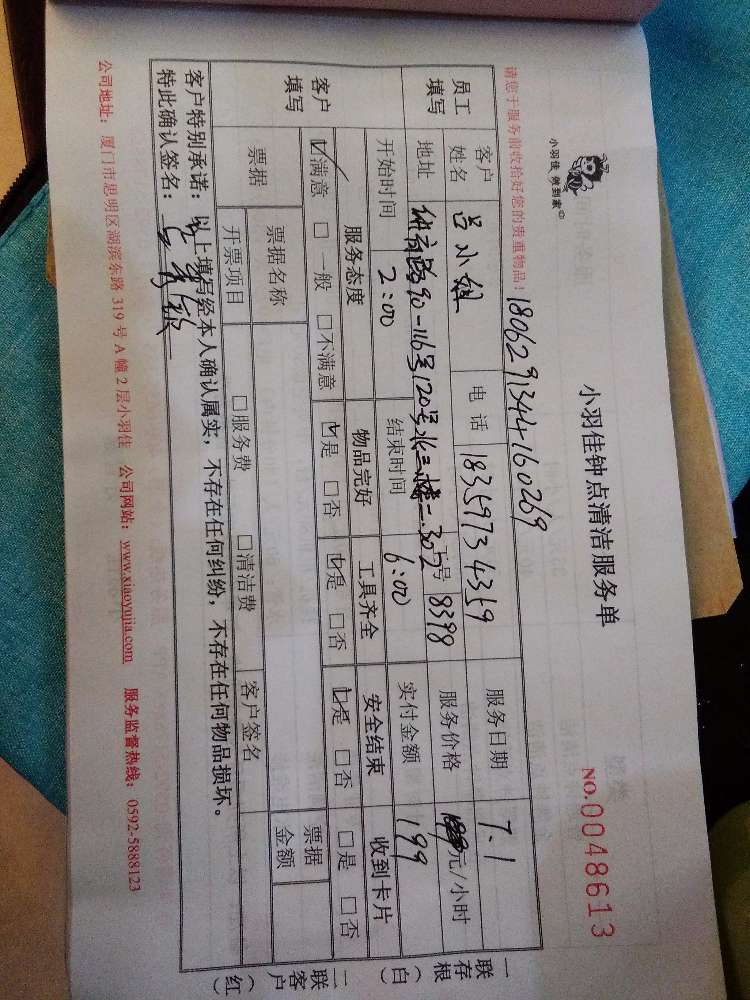 小羽佳 做到家
小羽佳钟点清洁服务单
NO.0048613
请您于服务前收拾好您的贵重物品！
1806291344160269
员工填写
客户姓名 吕小姐 电话 18359734359 服务日期 7.1
地址 90-116号120号 302 号 8398 服务价格 元/小时
开始时间 2:00 结束时间 6:00 实付金额 199
客户填写
服务态度 物品完好 工具齐全 安全结束 收到卡片
☑满意 □一般 □不满意 ☑是 □否 ☑是 □否 ☑是 □否 □是 □否
票据 票据名称 票据金额
开票项目 □服务费 □清洁费 客户签名
客户特别承诺：以上填写经本人确认属实，不存在任何纠纷，不存在任何物品损坏。
特此确认签名：
公司地址：厦门市思明区湖滨东路 319 号 A 幢 2 层小羽佳 公司网站：www.xiaoyujia.com 服务监督热线：0592-5888123
一联存根（白）
二联客户（红）